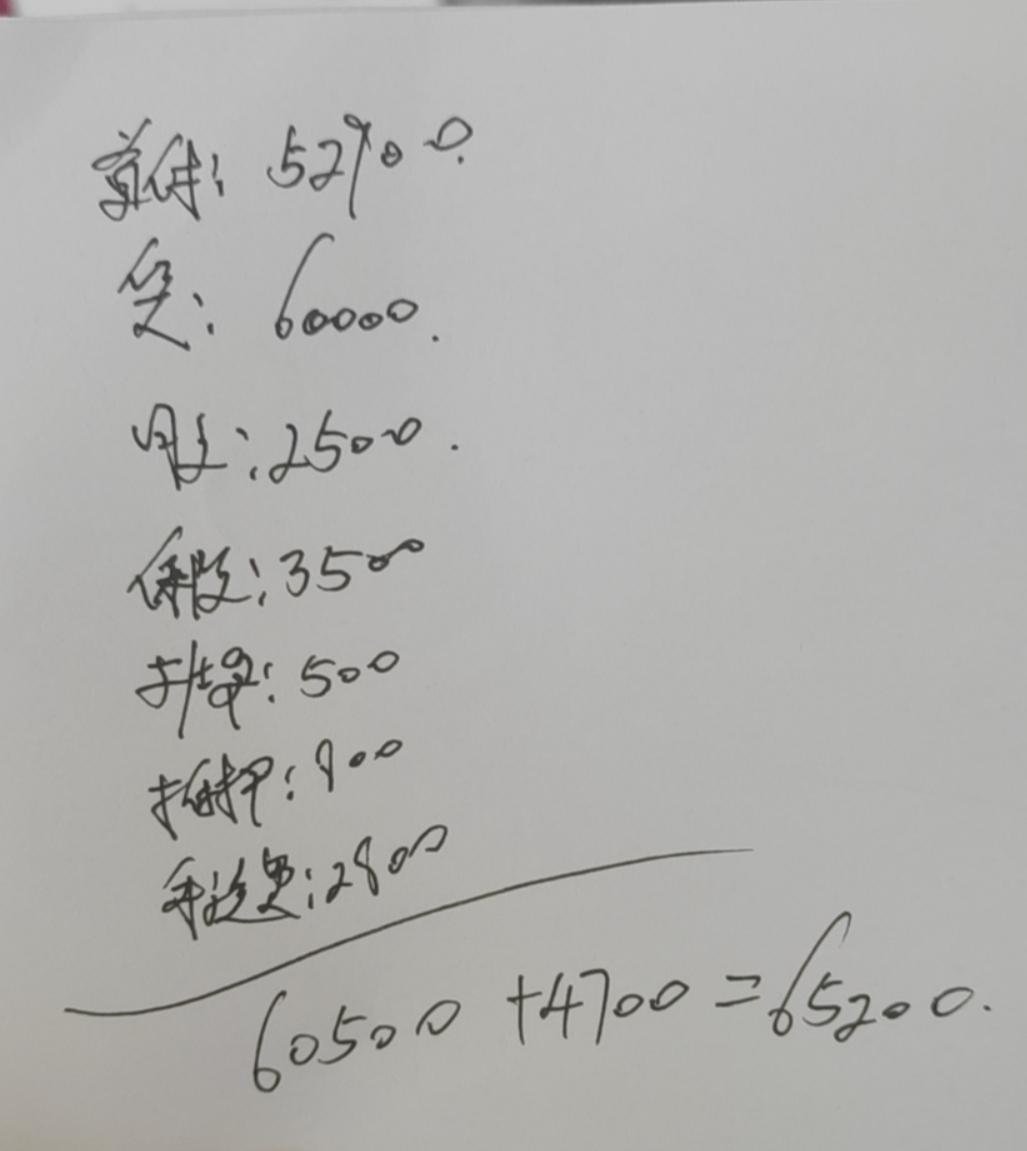 首付: 52900.
贷: 60000.
月供: 2500.
保险: 3500
上牌: 500
抵押: 900
手续费: 2900
60500+4700=65200.